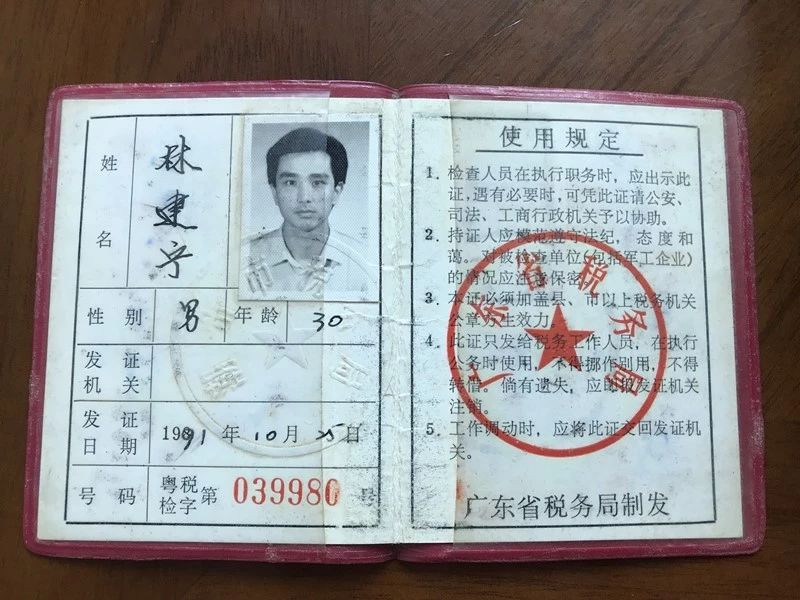 姓名 林建宁
性别 男 年龄 30
发证机关
发证日期 1991年10月25日
号码 粤税检字第 039980 号
使用规定
1. 检查人员在执行职务时，应出示此
证，遇有必要时，可凭此证请公安、
司法、工商行政机关予以协助。
2. 持证人应模范遵守法纪，态度和
蔼。对被检查单位(包括军工企业)
的情况应注意保密。
3. 本证必须加盖县、市以上税务机关
公章方生效力。
4. 此证只发给税务工作人员，在执行
公务时使用，不得挪作别用，不得
转借。倘有遗失，应即报发证机关
注销。
5. 工作调动时，应将此证交回发证机
关。
广东省税务局
广东省税务局制发